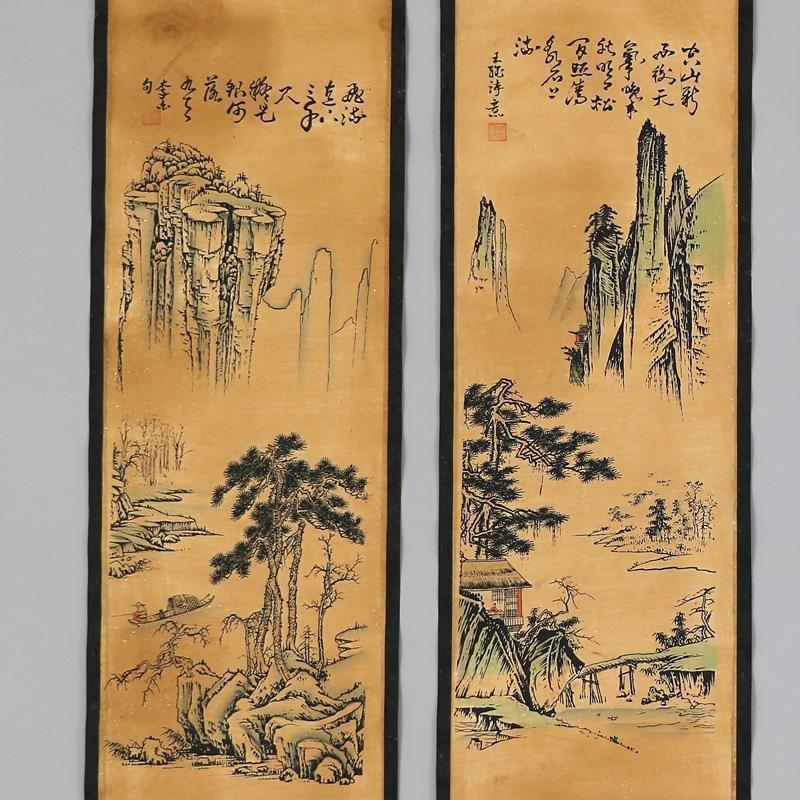 空山新
雨後天
氣晚来
秋明月松
間照清
泉石上
流
王維詩意
飛流
直下
三千
尺
疑是
銀河
落
九天
李白
句